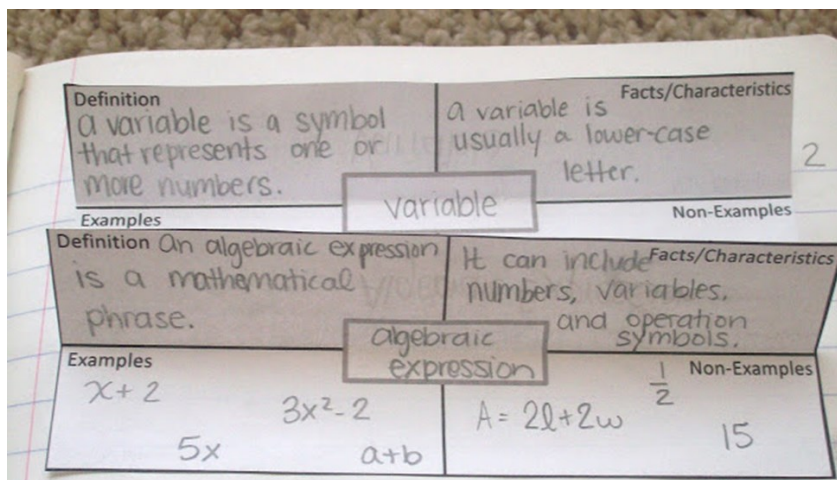 Definition
a variable is a symbol
that represents one or
more numbers.
Facts/Characteristics
a variable is
usually a lower-case
letter.
2
variable
Examples
Non-Examples
Definition An algebraic expression
is a mathematical
phrase.
Facts/Characteristics
It can include
numbers, variables,
and operation
symbols.
algebraic
expression
Examples
x + 2
3x² - 2
5x
a+b
Non-Examples
1/2
A = 2l + 2w
15